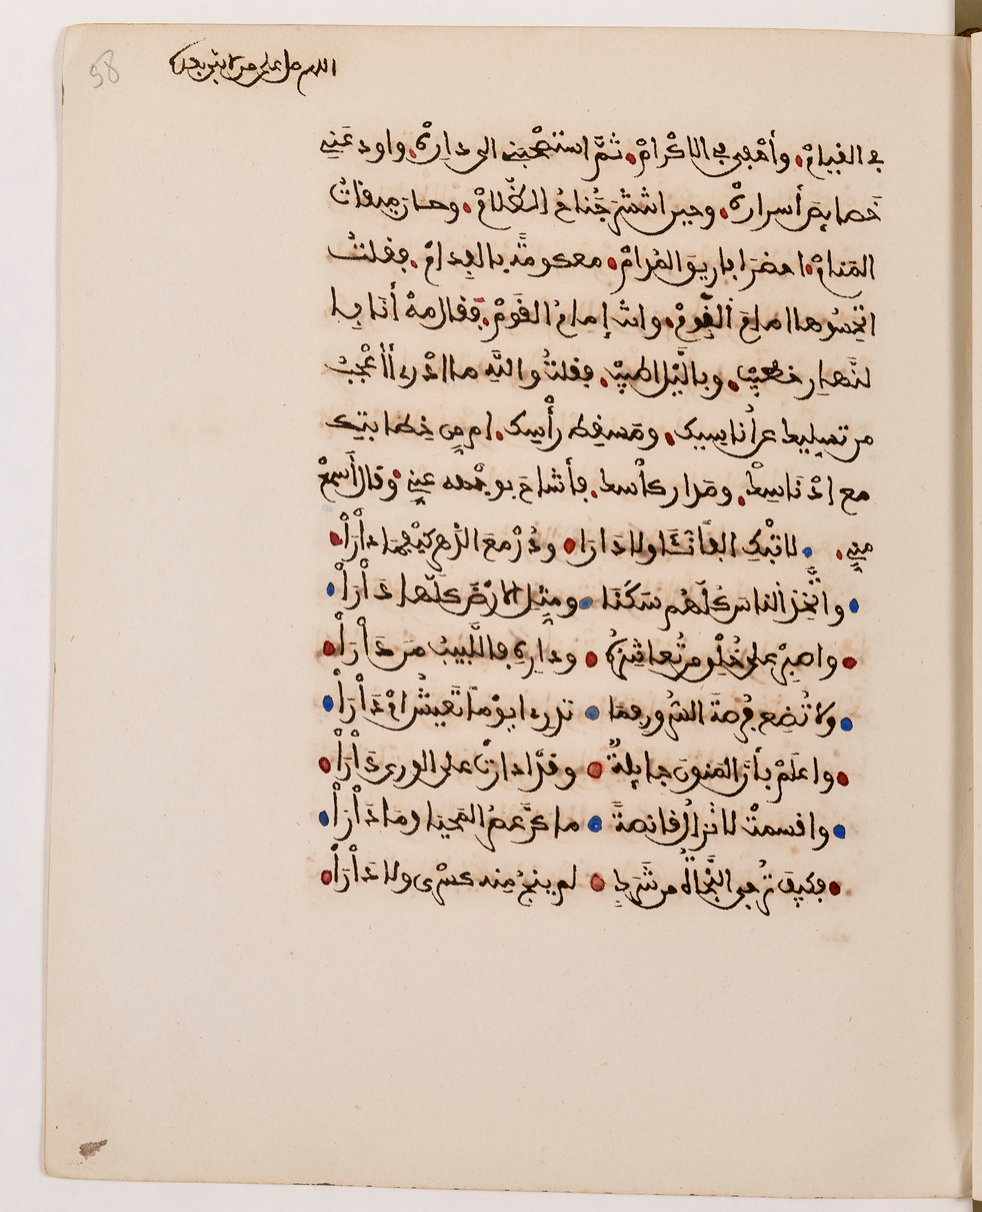 58
اللهم صل على من لا نبي بعده
في القيام. وأحفى بي الاكرام. ثم استصحبني الى داره. واودعني
خصايص أسراره. وحين انتشر جناح الظلام. وحان ميقات
المنام. احضر اباريق المدام. معكومة بالفدام. فقلت
اتحسوها امام النوم. وانت إمام القوم. فقال مه أنا با
لنهار خطيب. وبالليل اطيب. فقلت والله ما ادري أأعجب
من تسليك عن أناسك. ومسقط رأسك. ام من خطابتك
مع ادناسك. ومدار كأسك. فأشاح بوجهه عني. وقال أسمع
مني. لا تبك الفا نئا ولا دارا ودر مع الدهر كيفما دارا
واتخذ الناس كلهم سكنا ومثل الارض كلها دارا
واصبر على خلق من تعاشره وداره فاللبيب من دارا
ولا تضع فرصة السرور فما تدري ايوما تعيش ام دارا
واعلم بأن المنون جايلة وقد ادارت على الورى دارا
واقسمت لا تزال قانصة ما كر عصر المحيا وما دارا
فكيف ترجى النجاة من شرك لم ينج منه كسرى ولا دارا